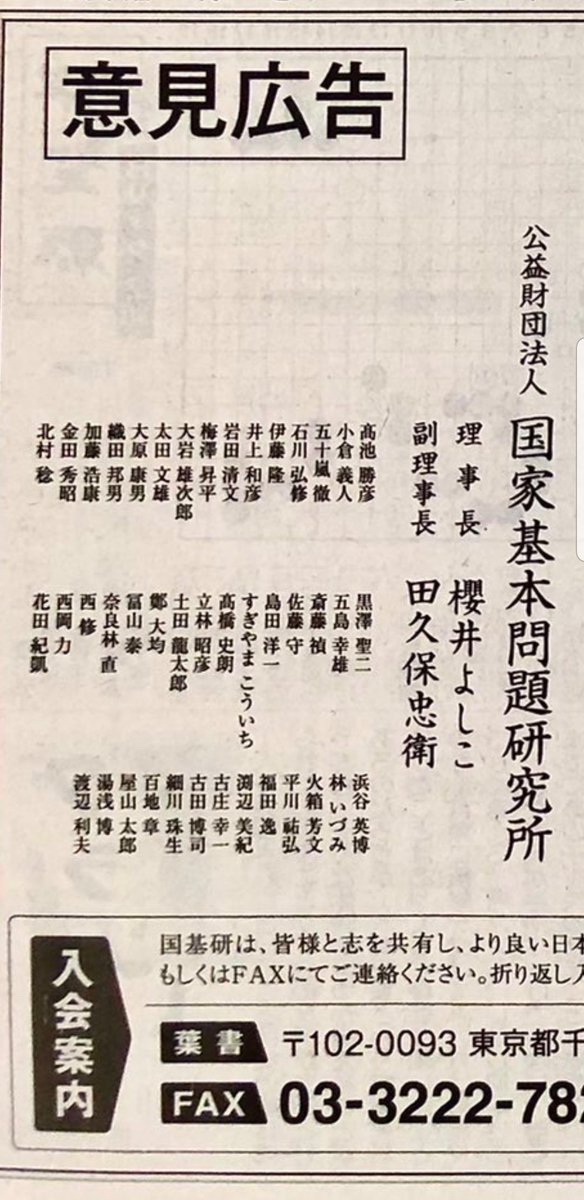 意見広告
公益財団法人 国家基本問題研究所
理事長 櫻井よしこ
副理事長 田久保忠衛
髙池 勝彦
小倉 義人
五十嵐 徹
石川 弘修
伊藤 隆
井上 和彦
岩田 清文
梅澤 昇平
大岩 雄次郎
太田 文雄
大原 康男
織田 邦男
加藤 浩康
金田 秀昭
北村 稔
黒澤 聖二
五島 幸雄
斎藤 禎
佐藤 守
島田 洋一
すぎやま こういち
髙橋 史朗
立林 昭彦
土田 龍太郎
鄭 大均
冨山 泰
奈良林 直
西 修
西岡 力
花田 紀凱
浜谷 英博
林 いづみ
火箱 芳文
平川 祐弘
福田 逸
渕辺 美紀
古庄 幸一
古田 博司
細川 珠生
百地 章
屋山 太郎
湯浅 博
渡辺 利夫
入会案内
国基研は、皆様と志を共有し、より良い日本
もしくはFAXにてご連絡ください。折り返し入
葉書 〒102-0093 東京都千
FAX 03-3222-782